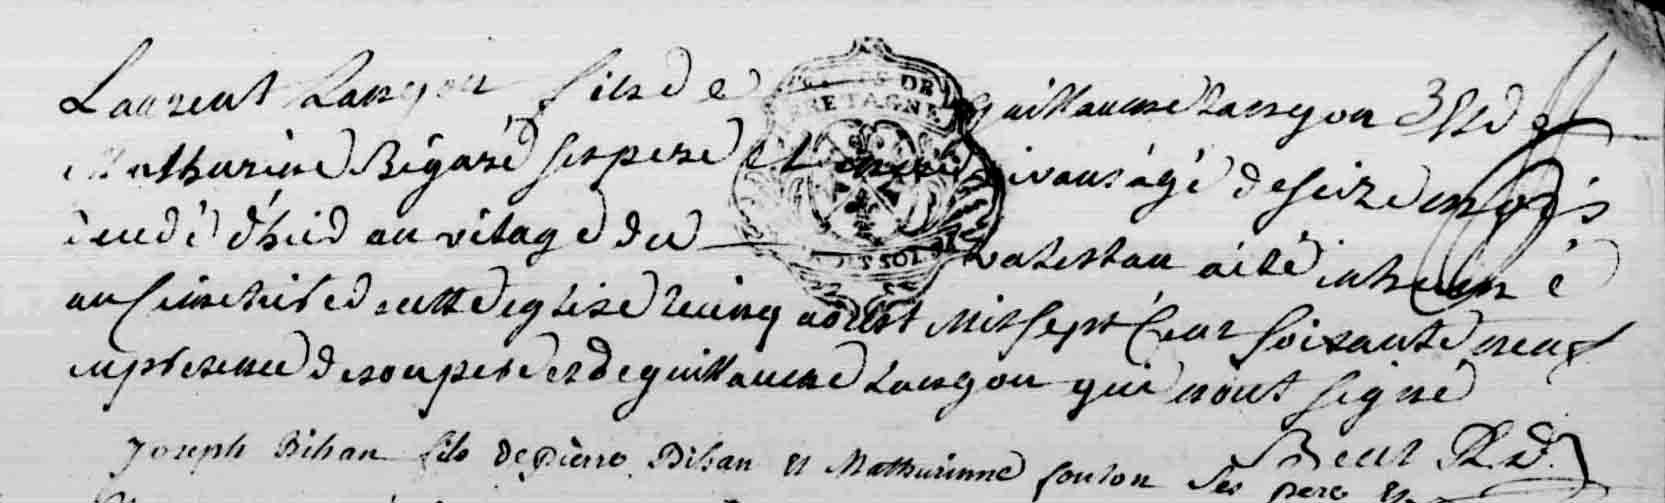 Laurent Langon fils de Guillaume Langon & de
Mathurine Bégaré ses pere et mere vivans agé de seize mois
décédé d'hier au vilage de a été inhumé
au Cimetiere de cette eglise le cinq aoust mil sept Cent soixante neuf
en presence de son pere et de guillaume Langon qui n'ont signé
Joseph Bihan fils de Pierre Bihan et Mathurinne soulon Ses pere &
DE BRETAGNE
SOLS